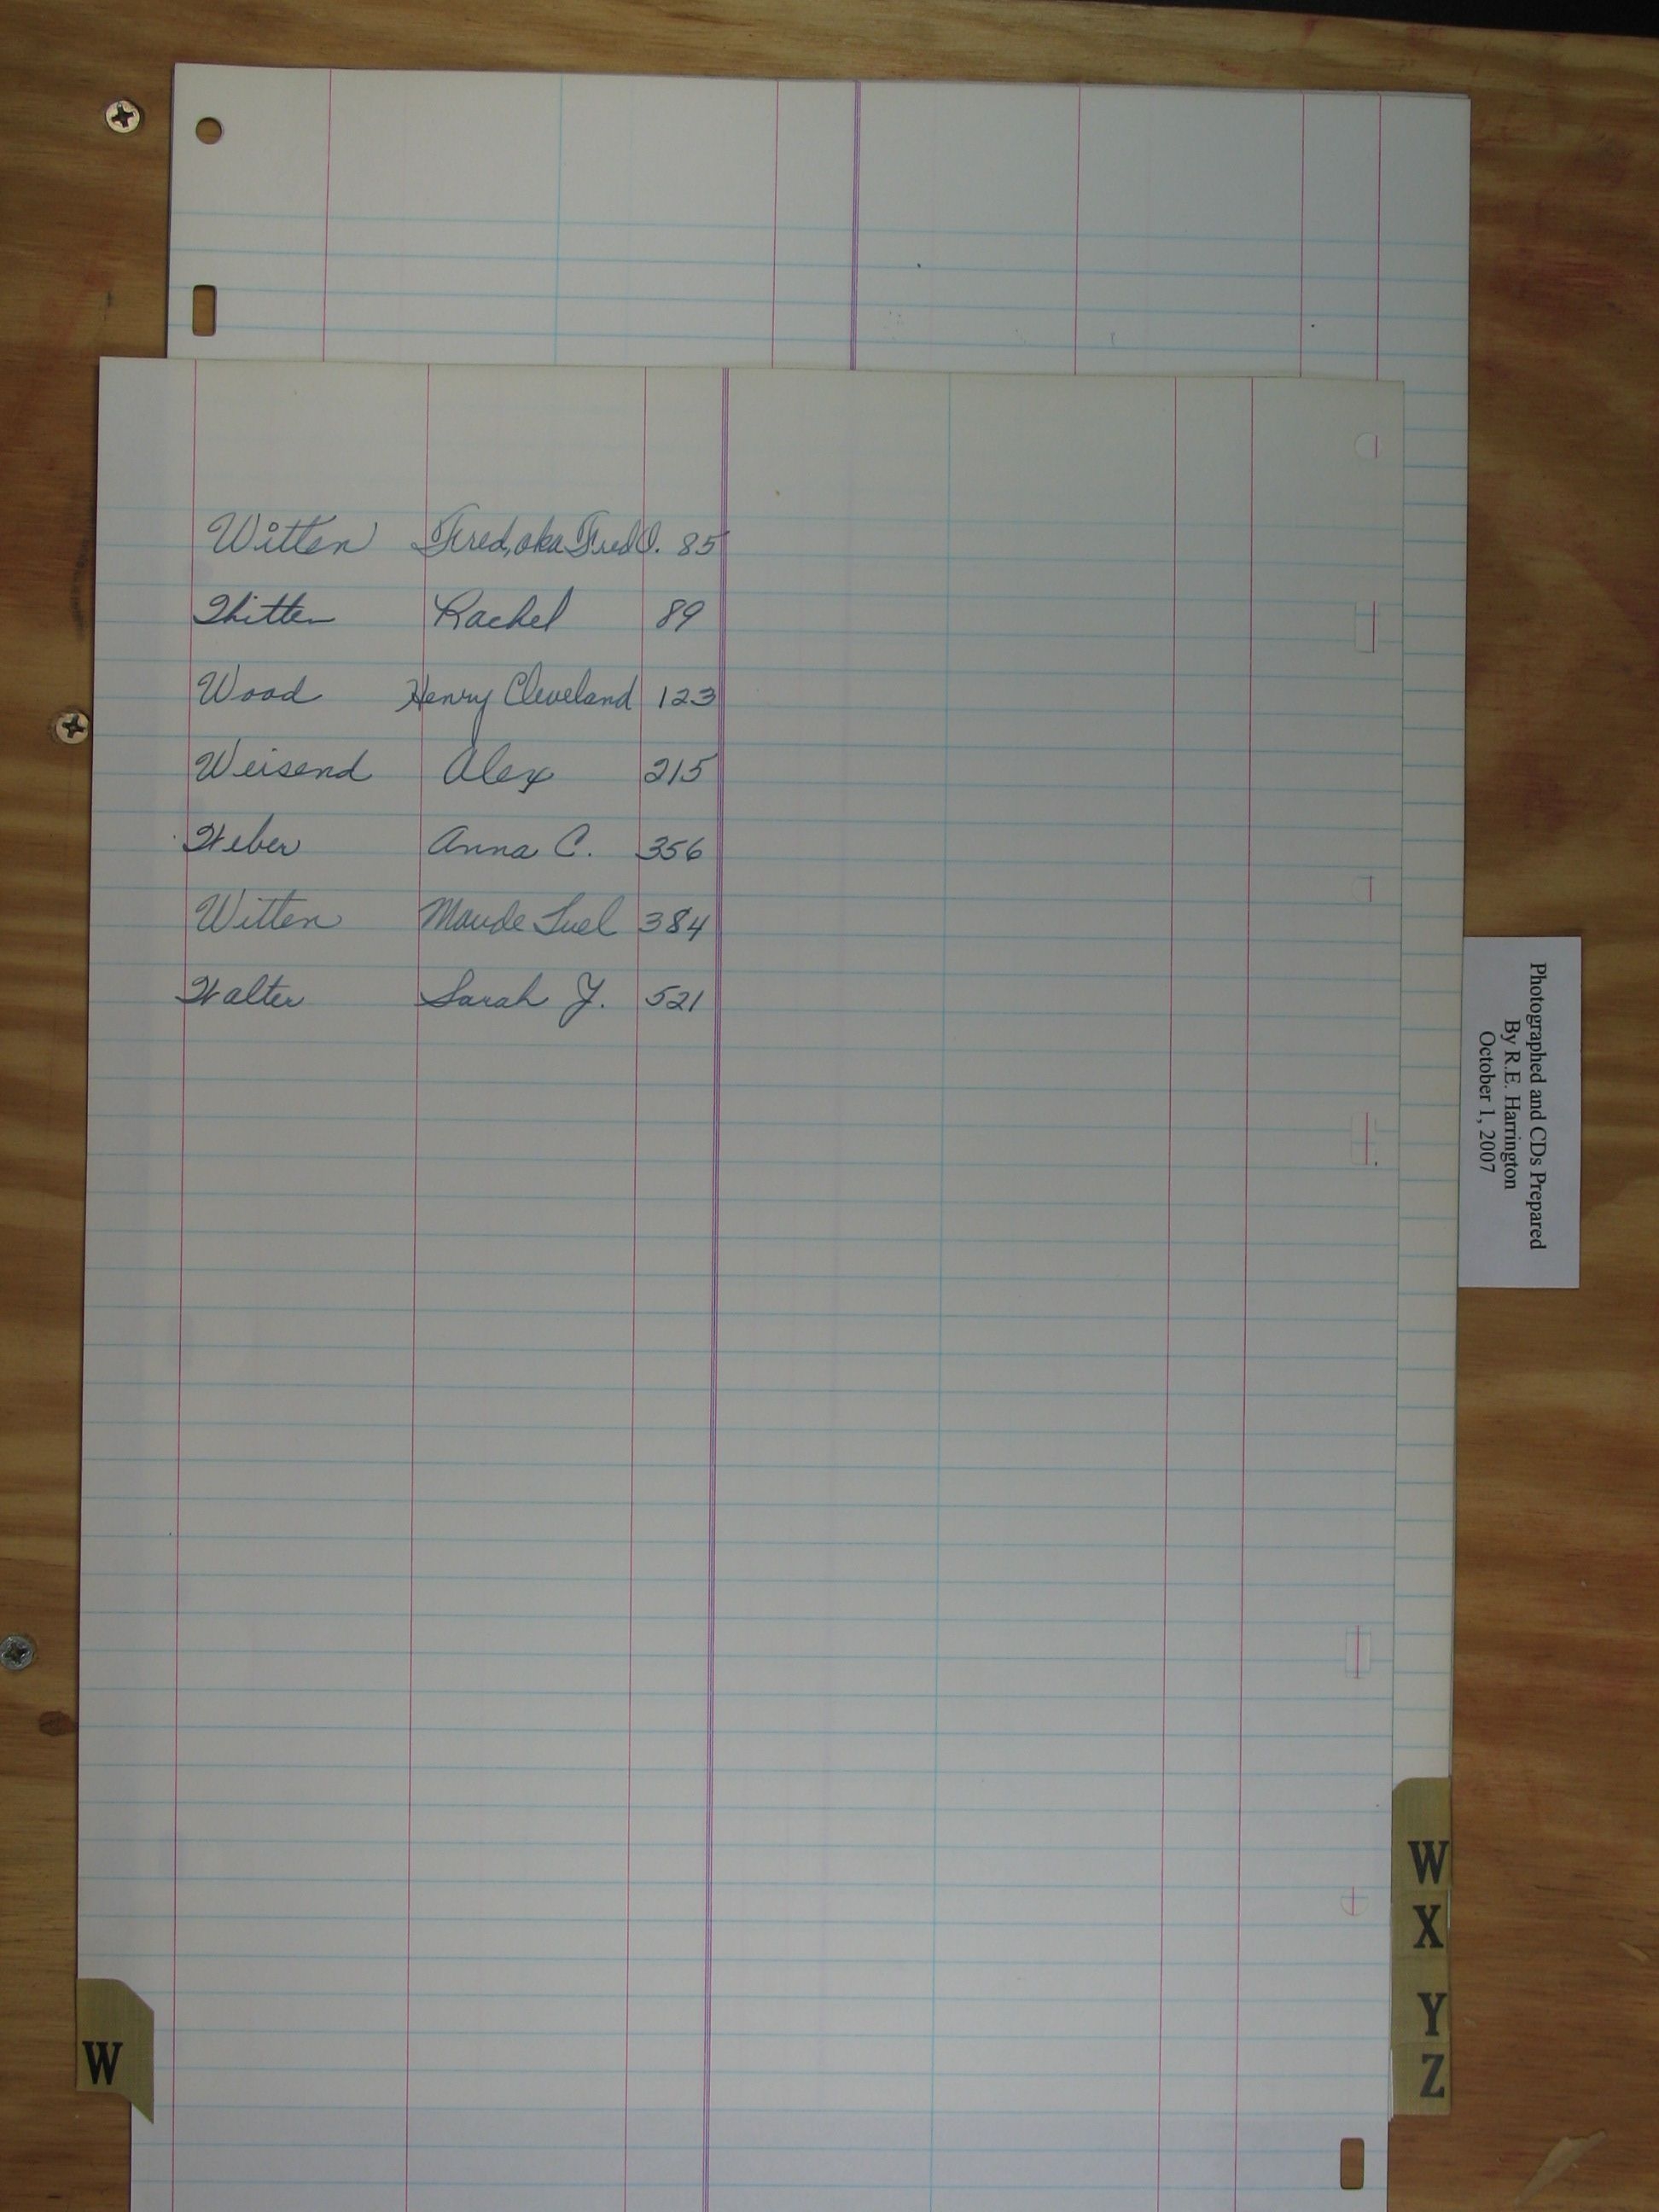 Witten Fred, aka Fred O. 85
Witten Rachel 89
Wood Henry Cleveland 123
Weisend Alex 215
Weber Anna C. 356
Witten Maude Luel 384
Walter Sarah J. 521
Photographed and CDs Prepared
By R.E. Harrington
October 1, 2007
W
X
Y
Z
W